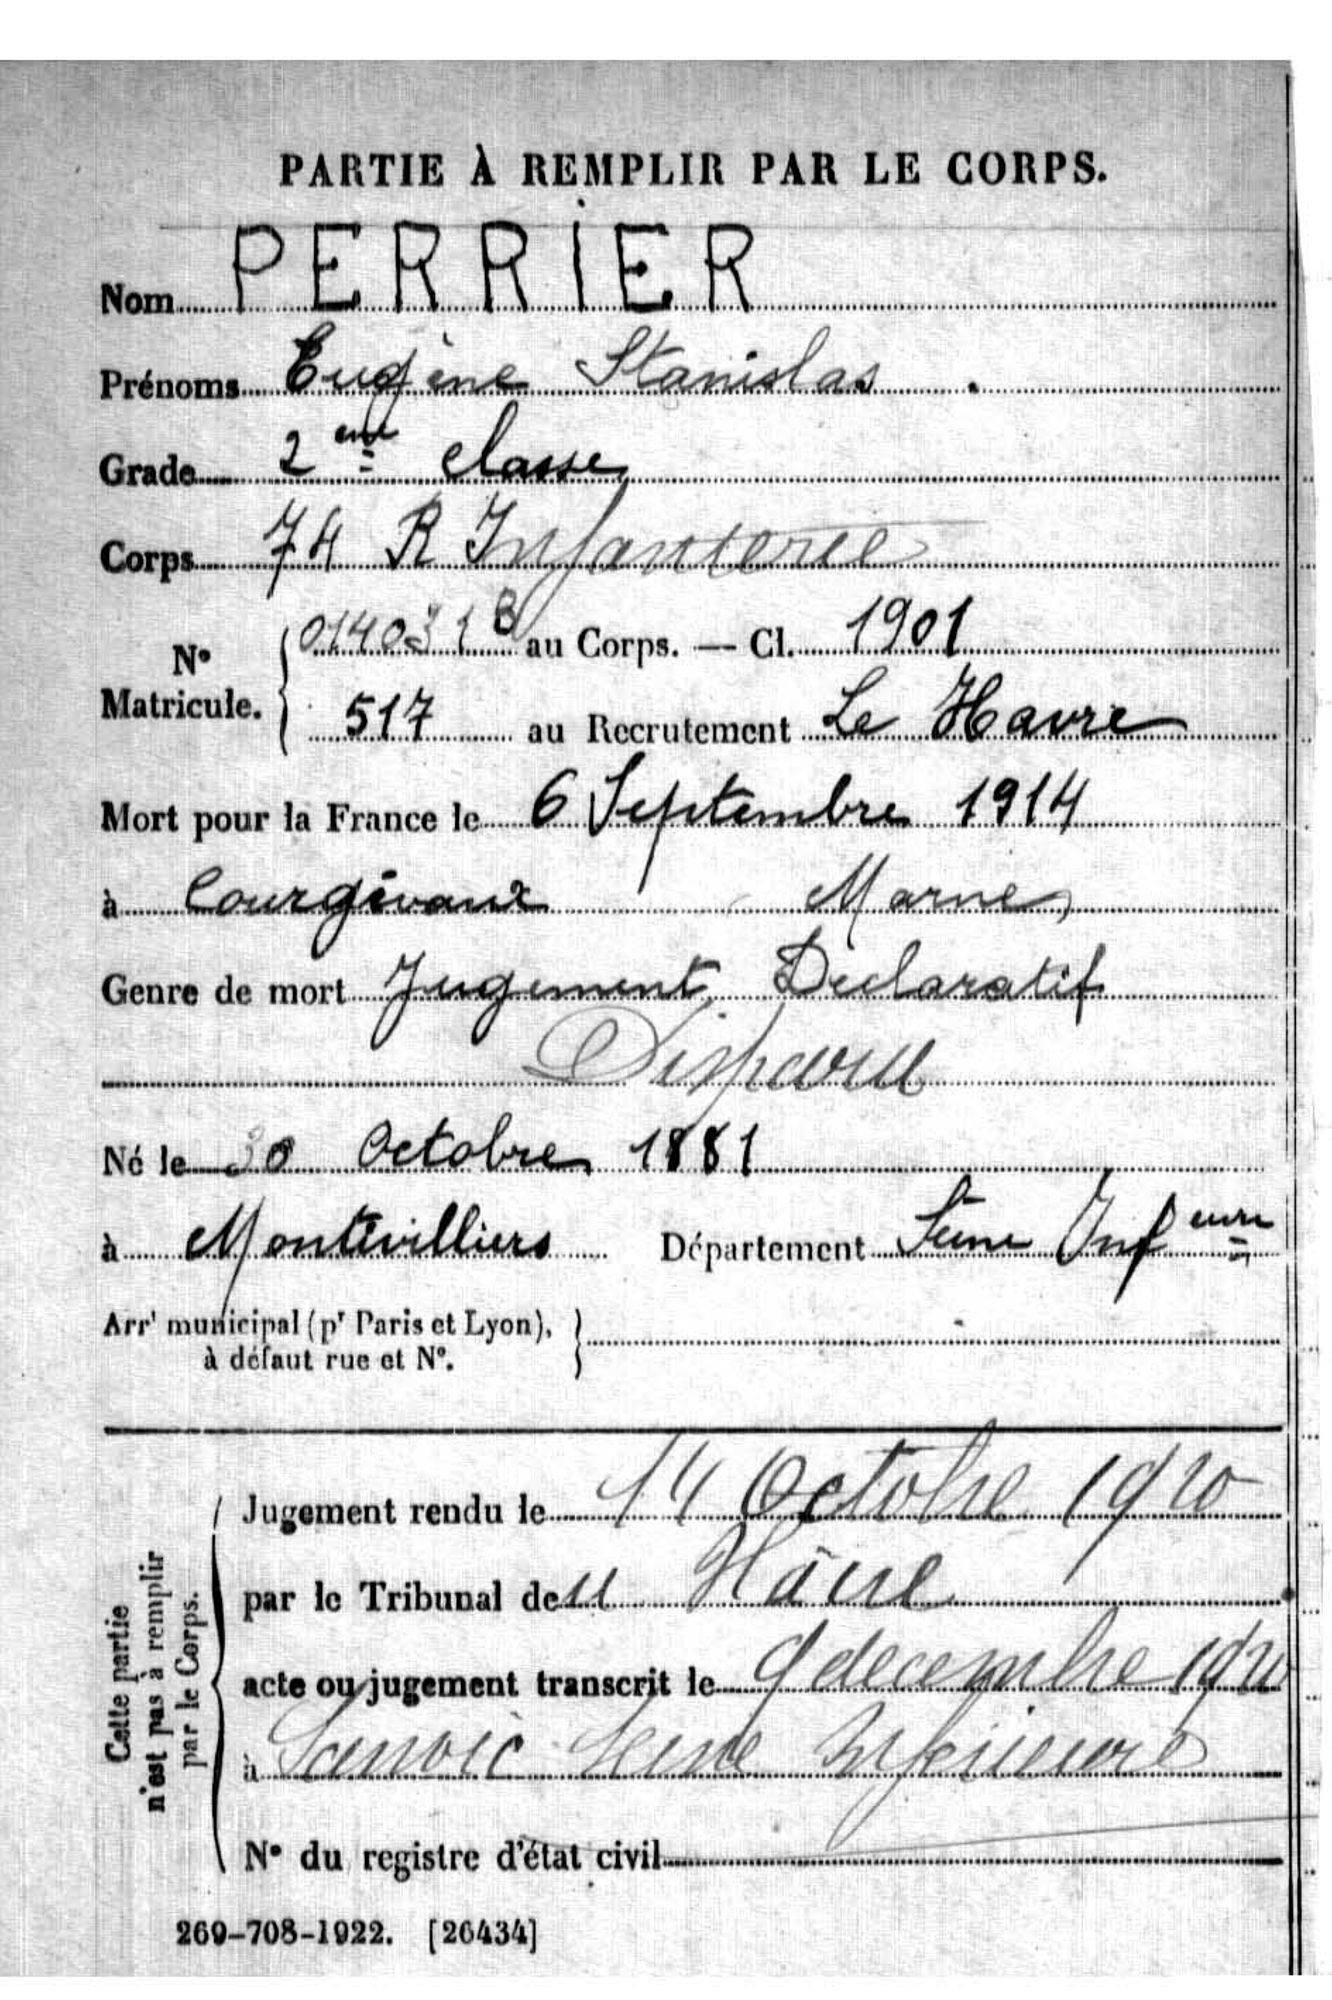 PARTIE À REMPLIR PAR LE CORPS.
Nom PERRIER
Prénoms Eugène Stanislas
Grade 2 eme classe
Corps 74 R Infanterie
N° Matricule. 014031 B au Corps. — Cl. 1901
517 au Recrutement Le Havre
Mort pour la France le 6 Septembre 1914
à Courgivaux Marne
Genre de mort Jugement Déclaratif
Disparu
Né le 30 Octobre 1881
à Montivilliers Département Seine Inf eure
Arrt municipal (pr Paris et Lyon),
à défaut rue et N°.
Cette partie
n'est pas à remplir
par le Corps.
Jugement rendu le 14 Octobre 1920
par le Tribunal de u Hâvre
acte ou jugement transcrit le 9 décembre 1920
à Sanvic Seine Inférieure
N° du registre d'état civil
269-708-1922. [26434]